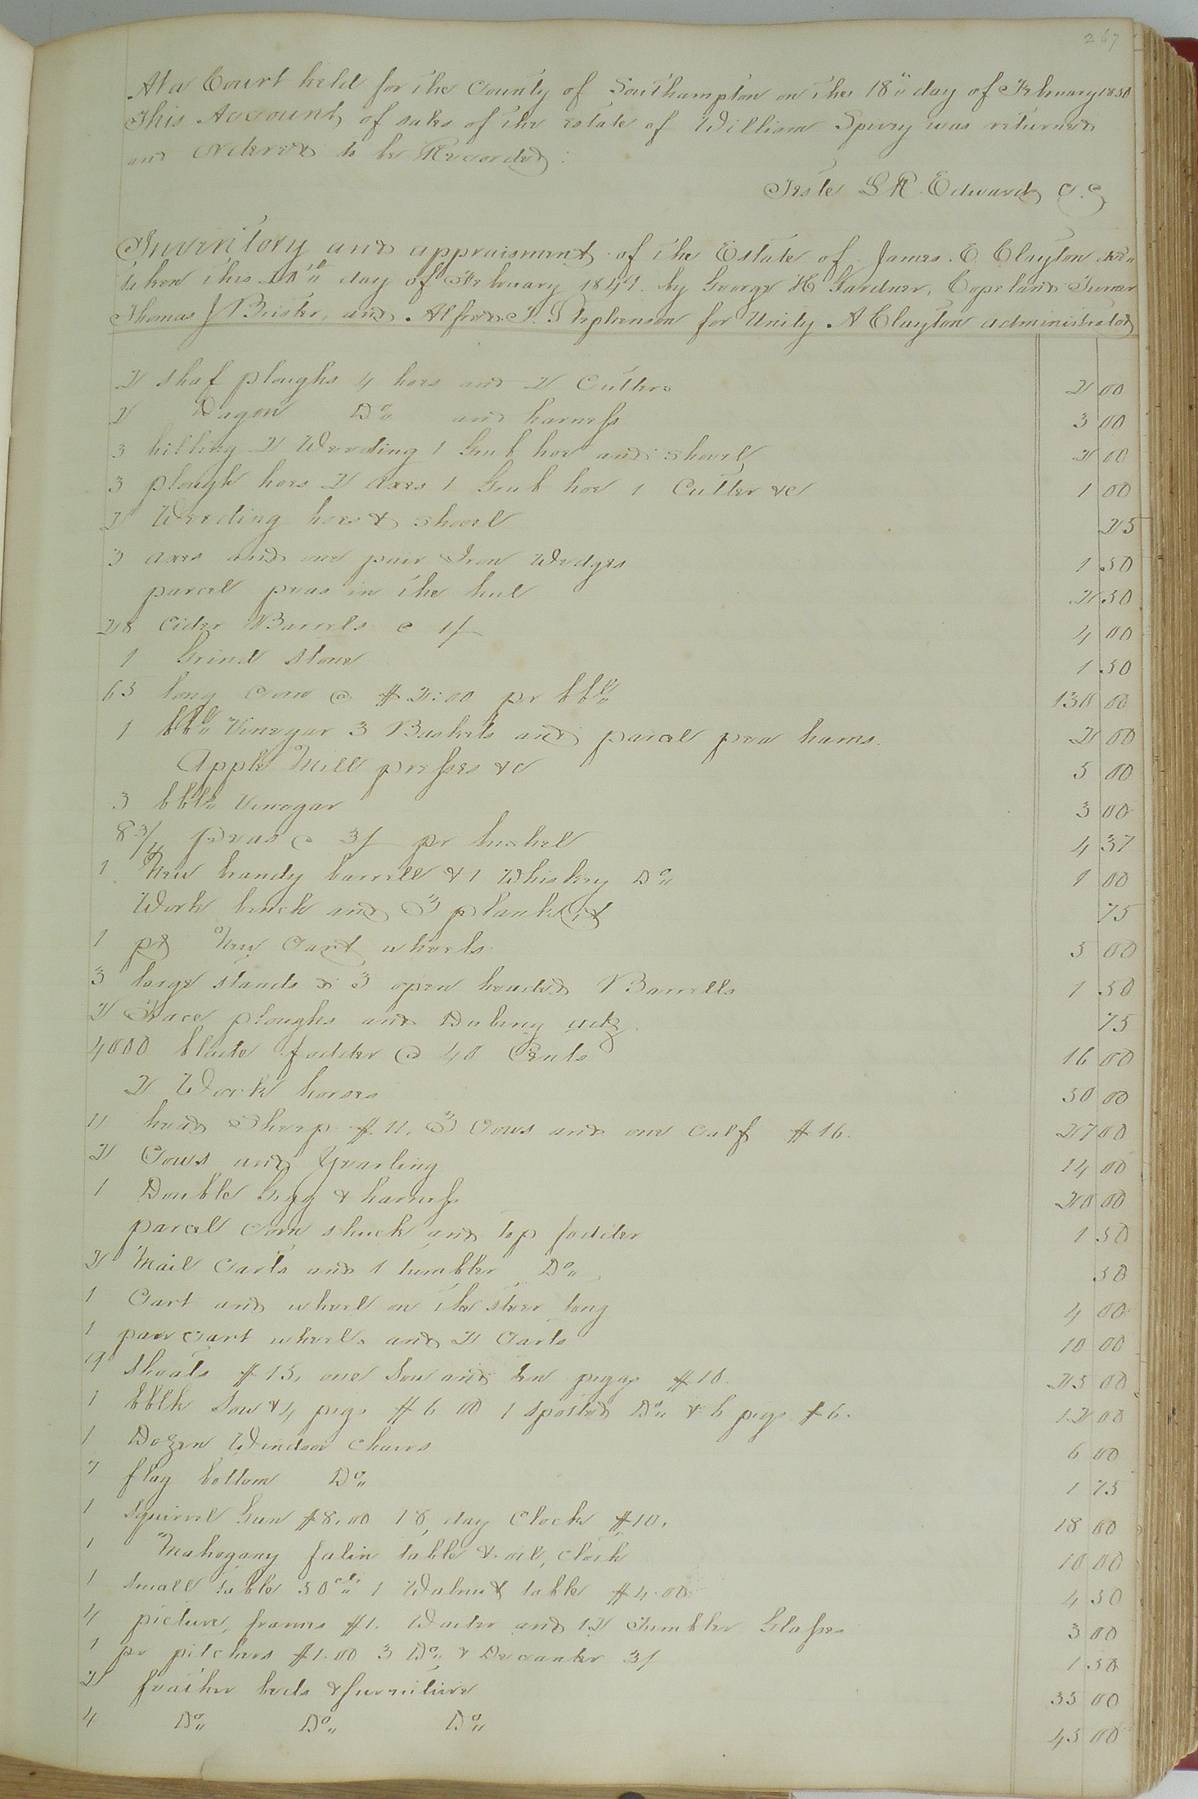 267
At a Court held for the County of Southampton on the 18" day of February 1850
This Account of sales of the Estate of William Spivey was returned
and ordered to be Recorded:
Teste L R Edwards C.C
Inventory and appraisment of the Estate of James E Clayton Decd
taken this day of February 1849 by George H Gardner, Copeland Turner
Thomas J Brister, and Alfred J. Stephenson for Unity A Clayton administrator
2 shaf ploughs 4 hoes and 2 Cutters 2 00
2 Dagon Do and harness 3 00
3 hilling 2 Weeding 1 Grub hoe and shovel 2 00
3 plough hoes 2 axes 1 Grub hoe 1 Cutter &c 1 00
2 Weeding hoes & shovel 25
3 axes and one pair Iron Wedges 1 50
parcel peas in the hul 2 50
28 Cider Barrels @ 1/ 4 00
1 Grind stone 1 50
65 long Corn @ $2:00 pr bbl 130 00
1 bbl Vinegar 3 Baskets and parcel pea hams 2 00
Apple Mill presses &c 5 00
3 bbls Vinegar 3 00
8 3/4 peas @ 3/ pr bushel 4 37
1 New brandy barrell & 1 Whiskey Do 1 00
Work bench and 3 plank 75
1 pr New Cart wheels 5 00
3 large stands & 3 open headed Barrells 1 50
2 Trace ploughs and 75
4000 blade fodder @ 40 Cents 16 00
2 Work horses 50 00
11 head Sheep $11. 3 Cows and one Calf $16. 27 00
2 Cows and Yearling 14 00
1 Double Gigg & harness 20 00
parcel Corn shuck and top fodder 1 50
2 Mail Carts and 1 tumbler Do 50
1 Cart and wheel on the steer 4 00
1 pair cart wheels and 2 Carts 10 00
9 Shoats $15, one Sow and ten pigs $10. 25 00
1 bblk Sow & 4 pigs $6 00 1 spotted Do & 6 pigs $6. 12 00
1 Dozen Windsor chairs 6 00
7 flag bottom Do 1 75
1 squirrel Gun $8.00 1 8 day Clock $10. 18 00
1 Mahogany falin table & oil cloth 10 00
1 small table 50cts 1 Walnut table $4.00 4 50
4 picture frames $1. Waiter and 12 Tumbler Glasses 3 00
1 pr pitchers $1.00 3 Do & Decanter 3/ 1 50
2 feather beds & furniture 35 00
4 Do Do Do 45 00